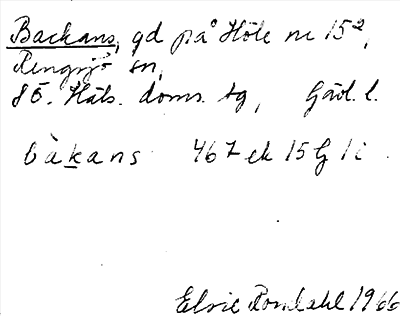 Backans, gd på Höle nr 15²,
Rengsjö sn,
Sö. Häls. doms. tg, Gävl. l.
bàkans 467 ek 15G 1i
Elsie Rondahl 1966